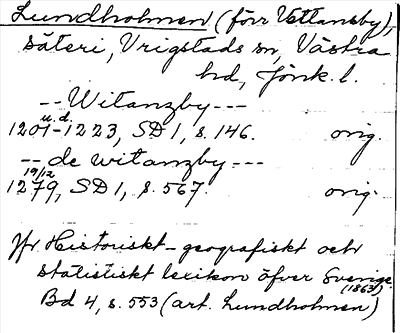 Lundholmen (förr Vettansby),
säteri, Vrigstads sn, Västra
hd, Jönk. l.
-- Witanzby ---
u.d.
1201-1223, SD 1, s. 146. orig.
-- de witanzby ---
19/12
1279, SD 1, s. 567. orig.
Jfr Historiskt-geografiskt och
statistiskt lexikon öfver Sverige
(1863)
Bd 4, s. 553 (art. Lundholmen)